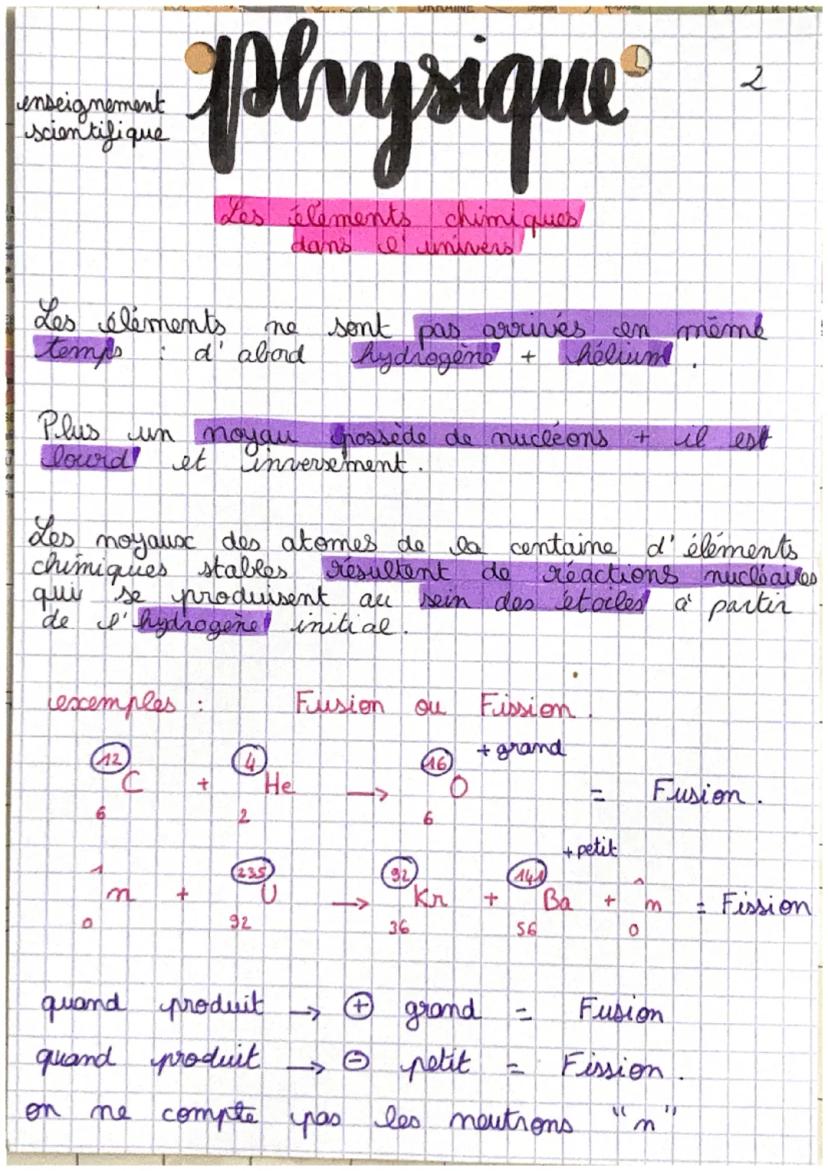 UKRAINE
KAZAKHS
physique
2
enseignement
scientifique
Les éléments chimiques
dans l'univers
Les éléments ne sont pas arrivés en même
temps : d'abord hydrogène + hélium.
Plus un noyau possède de nucléons + il est
lourd et inversement.
Les noyaux des atomes de la centaine d'éléments
chimiques stables résultent de réactions nucléaires
qui se produisent au sein des étoiles à partir
de l'hydrogène initial.
exemples : Fusion ou Fission.
+ grand
12 4 16
C + He → O = Fusion.
6 2 6
+ petit
1 235 92 141 1
n + U → Kr + Ba + n = Fission
0 92 36 56 0
quand produit → ⊕ grand = Fusion
quand produit → ⊖ petit = Fission.
on ne compte pas les neutrons "n"